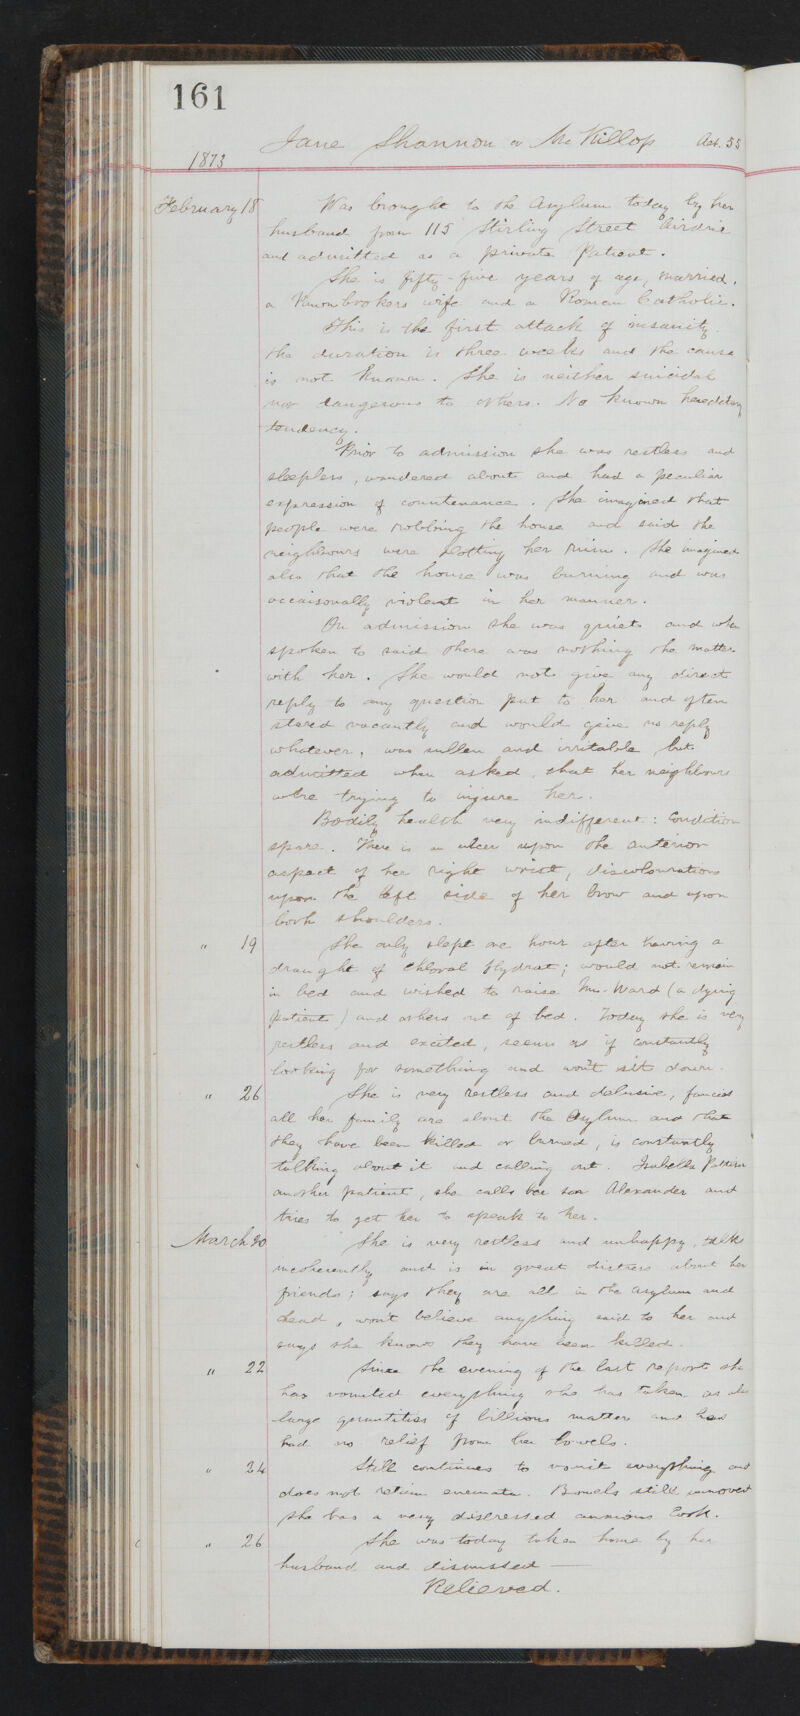 161
Jane Shannon or McKillop Aet. 55
1873
February 18 Was brought to the Asylum today by her
husband from 115 Stirling Street Airdrie
and admitted as a private Patient.
She is fifty-five years of age, married,
a Pawnbrokers wife and a Roman Catholic.
This is the first attack of insanity.
the duration is three weeks and the cause
is not known. She is neither suicidal
nor dangerous to others. No known hereditary
tendency.
Prior to admission she was restless and
sleepless, wandered about and had a peculiar
expression of countenance. She imagined that
people were robbing the house and said the
neighbours were plotting her ruin. She imagined
also that the house was burning and was
occaisonally violent in her manner.
On admission she was quiet and when
spoken to said there was nothing the matter
with her. She would not give any direct
reply to any question put to her and often
stared vacantly and would give no reply
whatever, was sullen and irritable but
admitted when asked, that her neighbours
were trying to injure her.
Bodily health very indifferent: Condition
spare. There is an ulcer upon the anterior
aspect of her right wrist, discolourations
upon the left side of her brow and upon
both shoulders.
" 19 She only slept one hour after having a
draught of Chloral Hydrat; would not remain
in bed and wished to raise Mrs. Ward (a dying
patient) and others out of bed. Today she is very
restless and excited, seems as if constantly
looking for something and won't sit down.
" 26 She is very restless and delusive, fancies
all her family are about the Asylum and that
they have been killed or burned, is constantly
talking about it and calling out. Isabella
another patient, she calls her son Alexander and
tries to get her to speak to her.
March 20 She is very restless and unhappy, talks
incoherently and is in great distress about her
friends; says they are all in the asylum and
dead, won't believe anything said to her and
says she knows they have been killed.
" 22 Since the evening of the last report she
has vomited everything she has taken as also
large quantities of billious matter and has
had no relief from her bowels.
" 24 Still continues to vomit everything and
does not retain enemata. Bowels still unmoved
she has a very distressed anxious look.
" 26 She was today taken home by her
husband and dismissed —
Relieved.